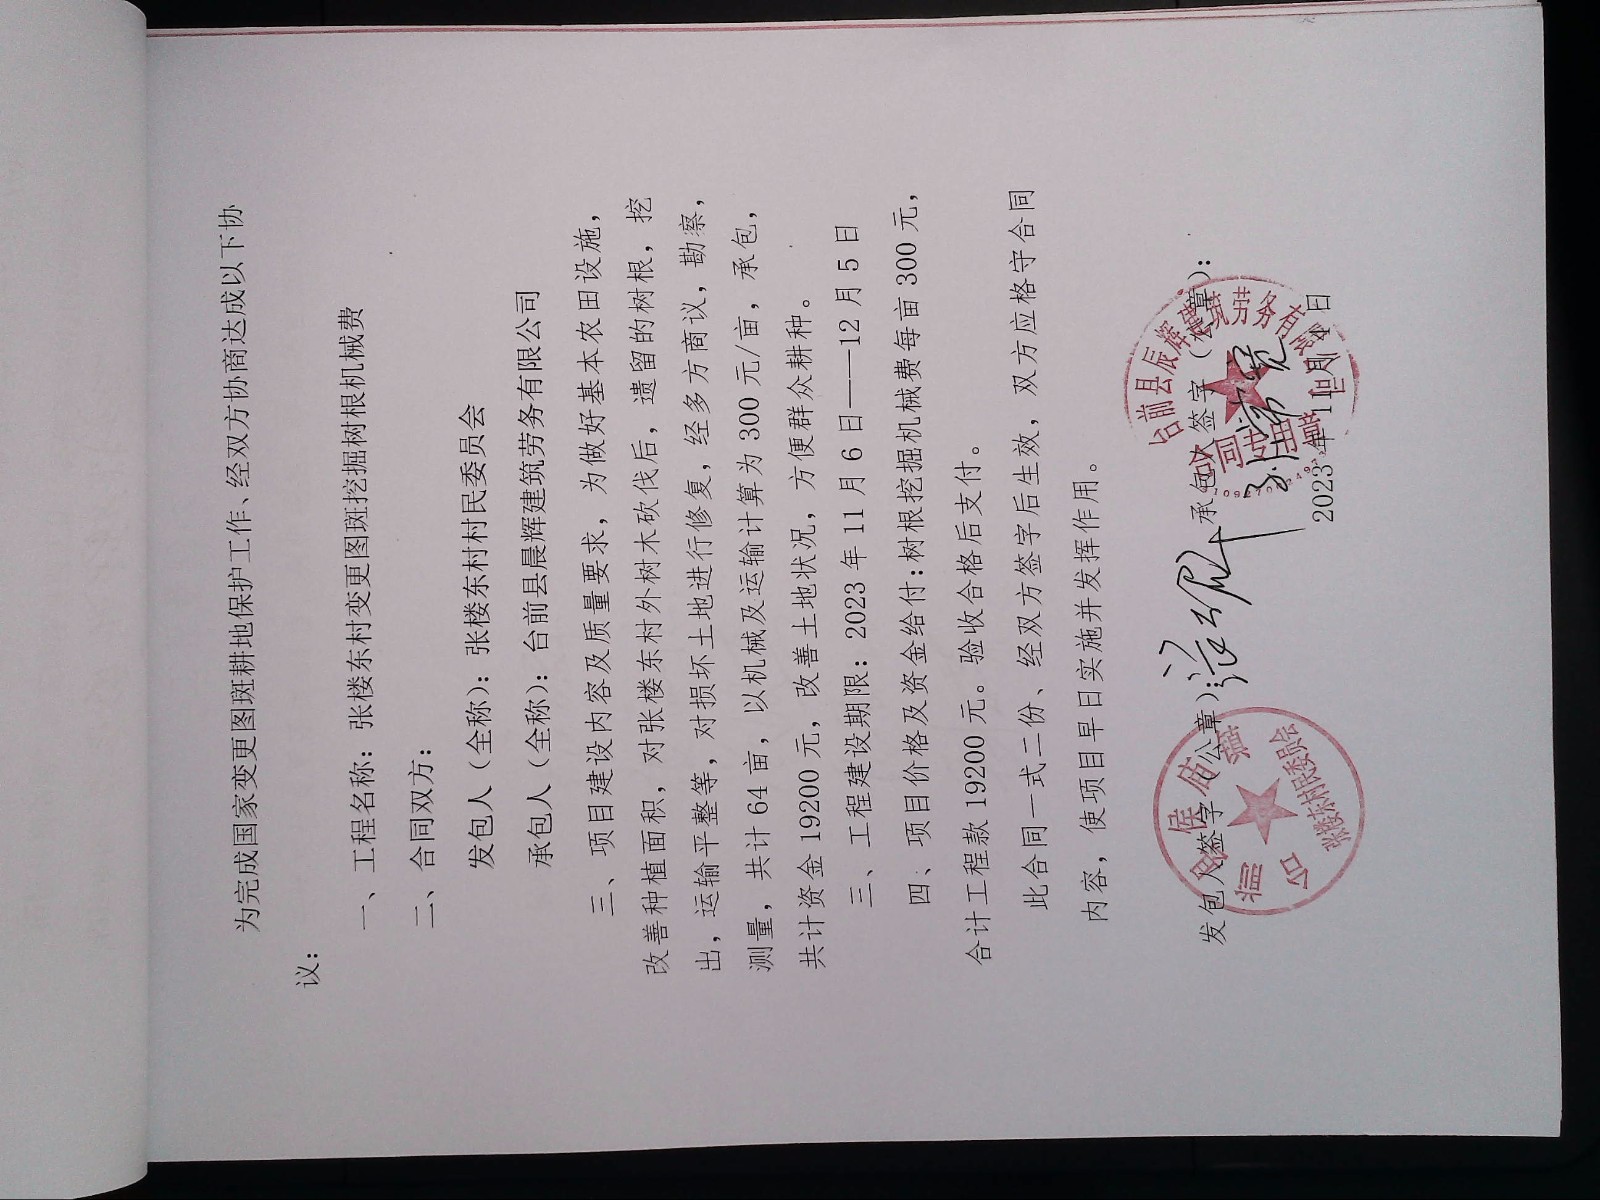 为完成国家变更图斑耕地保护工作、经双方协商达成以下协
议：
一、工程名称：张楼东村变更图斑挖掘树根机械费
二、合同双方：
发包人（全称）：张楼东村村民委员会
承包人（全称）：台前县晨辉建筑劳务有限公司
三、项目建设内容及质量要求，为做好基本农田设施，
改善种植面积，对张楼东村外树木砍伐后，遗留的树根，挖
出，运输平整等，对损坏土地进行修复，经多方商议，勘察，
测量，共计 64 亩，以机械及运输计算为 300 元/亩，承包，
共计资金 19200 元，改善土地状况，方便群众耕种。
三、工程建设期限：2023 年 11 月 6 日——12 月 5 日
四、项目价格及资金给付:树根挖掘机械费每亩 300 元，
合计工程款 19200 元。验收合格后支付。
此合同一式二份、经双方签字后生效，双方应格守合同
内容，使项目早日实施并发挥作用。
发包人签字（公章）：
承包人签字（公章）：
2023 年 11 月 4 日
侯庙镇
张楼东村村民委员会
台前县辰辉建筑劳务有限公司
合同专用章